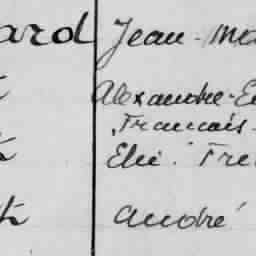 ard Jean-Ma
Alexandre-E
Francais-
Elie. Fre
André